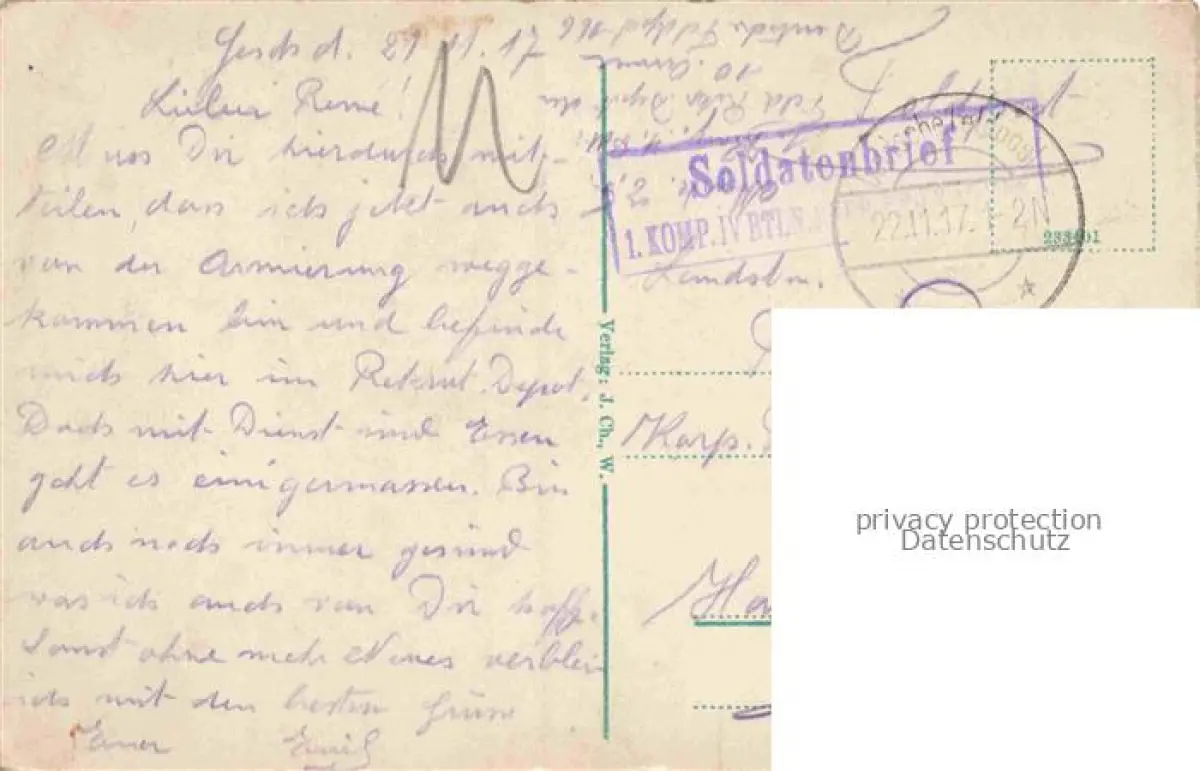 d. 21.11.17
Lieber René!
Muss Dir hierdurch mit-
teilen, dass ich jetzt auch
von der Armierung wegge-
kommen bin und befinde
mich hier im Rekrut. Depot.
Doch mit Dienst und Essen
geht es einigermassen. Bin
auch noch immer gesund
was ich auch von Dir hoffe.
Sonst ohne mehr Neues verblei
ich mit den besten Grüss
Euer Emil
Deutsche Feldpost 166
10. Armee
Feld Rekr. Depot der
Soldatenbrief
1. KOMP. IV BTLN.
22.11.17. 2N
233401
Landstm.
Korp.
Ha
Verlag: J. Ch., W.
privacy protection
Datenschutz